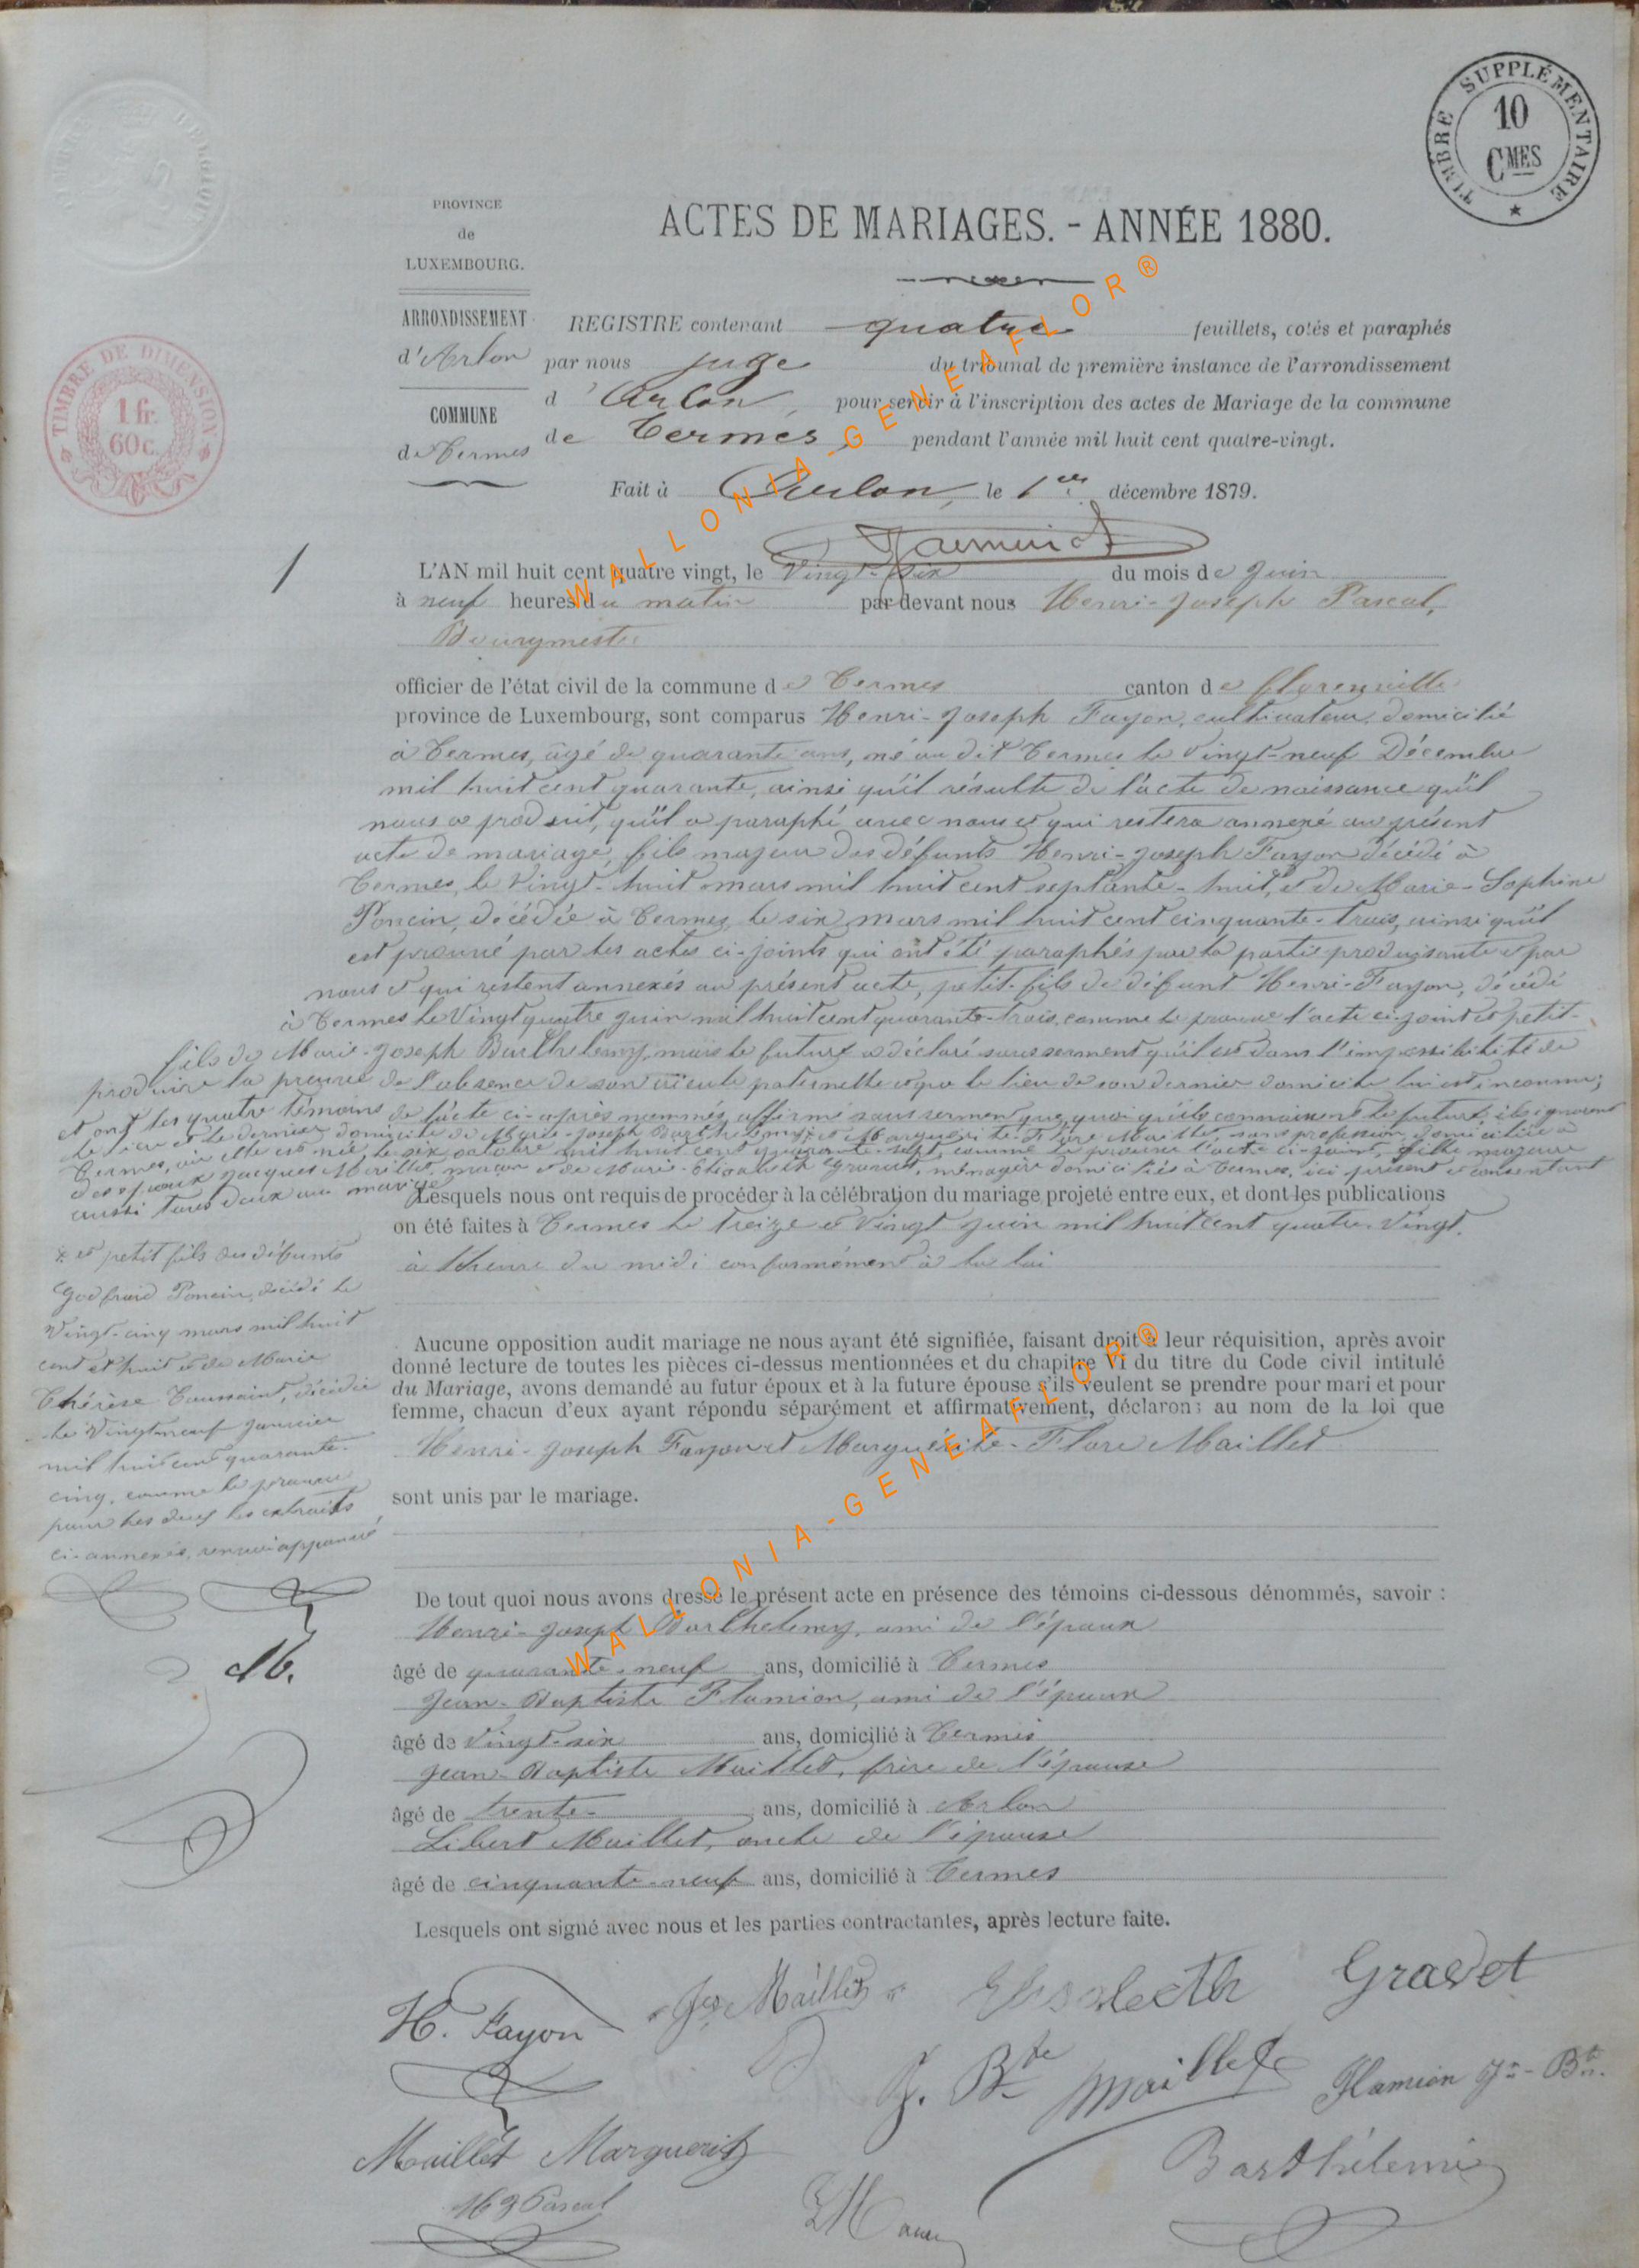 TIMBRE SUPPLÉMENTAIRE
10
CMES
PROVINCE
de
LUXEMBOURG.
ACTES DE MARIAGES. - ANNÉE 1880.
ARRONDISSEMENT
d'Arlon
COMMUNE
de Termes
TIMBRE DE DIMENSION
1 fr.
60c.
REGISTRE contenant quatre feuillets, cotés et paraphés
par nous juge du tribunal de première instance de l'arrondissement
d'Arlon, pour servir à l'inscription des actes de Mariage de la commune
de Termes pendant l'année mil huit cent quatre-vingt.
Fait à Arlon, le 1er décembre 1879.
1
L'AN mil huit cent quatre vingt, le vingt-six du mois de Juin
à neuf heures du matin par devant nous Henri-Joseph Pascal,
Bourgmestre
officier de l'état civil de la commune de Termes canton de Florenville
province de Luxembourg, sont comparus Henri-Joseph Fayon, cultivateur, domicilié
à Termes, âgé de quarante ans, né au dit Termes le vingt-neuf Décembre
mil huit cent quarante, ainsi qu'il résulte de l'acte de naissance qu'il
nous a produit, qu'il a paraphé avec nous et qui restera annexé au présent
acte de mariage, fils majeur des défunts Henri-Joseph Fayon décédé à
Termes, le vingt-huit mars mil huit cent septante-huit, et de Marie-Josephine
Poncin, décédée à Termes, le six mars mil huit cent cinquante-trois, ainsi qu'il
est prouvé par les actes ci-joints qui ont été paraphés par la partie produisante et par
nous et qui restent annexés au présent acte, petit-fils de défunt Henri-Fayon, décédé
à Termes le vingt quatre juin mil huit cent quarante-trois, comme le prouve l'acte ci-joint et petit-
fils de Marie-Joseph Barthelemy, mais le futur a déclaré sous serment qu'il est dans l'impossibilité de
produire la preuve de l'absence de son aïeule paternelle et que le lieu de son dernier domicile lui est inconnu;
et ont les quatre témoins de l'acte ci-après nommés, affirmé sous serment que, quoi qu'ils connaissent le futur, ils ignorent
le lieu et le dernier domicile de Marie-Joseph Barthelemy; et Marguerite-Flore Maillet, sans profession, domiciliée à
Termes, où elle est née, le six octobre mil huit cent quarante-sept, comme le prouve l'acte ci-joint, fille majeure
des époux Jacques Maillet, maçon et de Marie-Elisabeth Gravet, ménagère domiciliés à Termes, ici présent et consentant
aussi tous deux au mariage
Lesquels nous ont requis de procéder à la célébration du mariage projeté entre eux, et dont les publications
on été faites à Termes le treize et vingt juin mil huit cent quatre-vingt.
à l'heure du midi conformément à la loi
et petit fils des défunts
Godfroid Poncin, décédé le
vingt-cinq mars mil huit
cent et huit et de Marie
Thérèse Toussaint, décédée
le vingt-neuf Janvier
mil huit cent quarante-
cinq, comme le prouve
pour les deux les extraits
ci-annexés, renvoi approuvé
Aucune opposition audit mariage ne nous ayant été signifiée, faisant droit à leur réquisition, après avoir
donné lecture de toutes les pièces ci-dessus mentionnées et du chapitre VI du titre du Code civil intitulé
du Mariage, avons demandé au futur époux et à la future épouse s'ils veulent se prendre pour mari et pour
femme, chacun d'eux ayant répondu séparément et affirmativement, déclarons au nom de la loi que
Henri-Joseph Fayon et Marguerite-Flore Maillet
sont unis par le mariage.
De tout quoi nous avons dressé le présent acte en présence des témoins ci-dessous dénommés, savoir :
Henri-Joseph Barthelemy, ami de l'époux
âgé de quarante-neuf ans, domicilié à Termes
Jean-Baptiste Flamion, ami de l'époux
âgé de vingt-six ans, domicilié à Termes
Jean-Baptiste Maillet, frère de l'épouse
âgé de trente- ans, domicilié à Arlon
Libert Maillet, oncle de l'épouse
âgé de cinquante-neuf ans, domicilié à Termes
Lesquels ont signé avec nous et les parties contractantes, après lecture faite.
H. Fayon
Maillet
Elisabecth Gravet
J. Bte Maillet
Flamion Jn-Bte.
Maillet Marguerite
Barthélemi
HJ Pascal
WALLONIA-GENEAFLOR®
WALLONIA-GENEAFLOR®